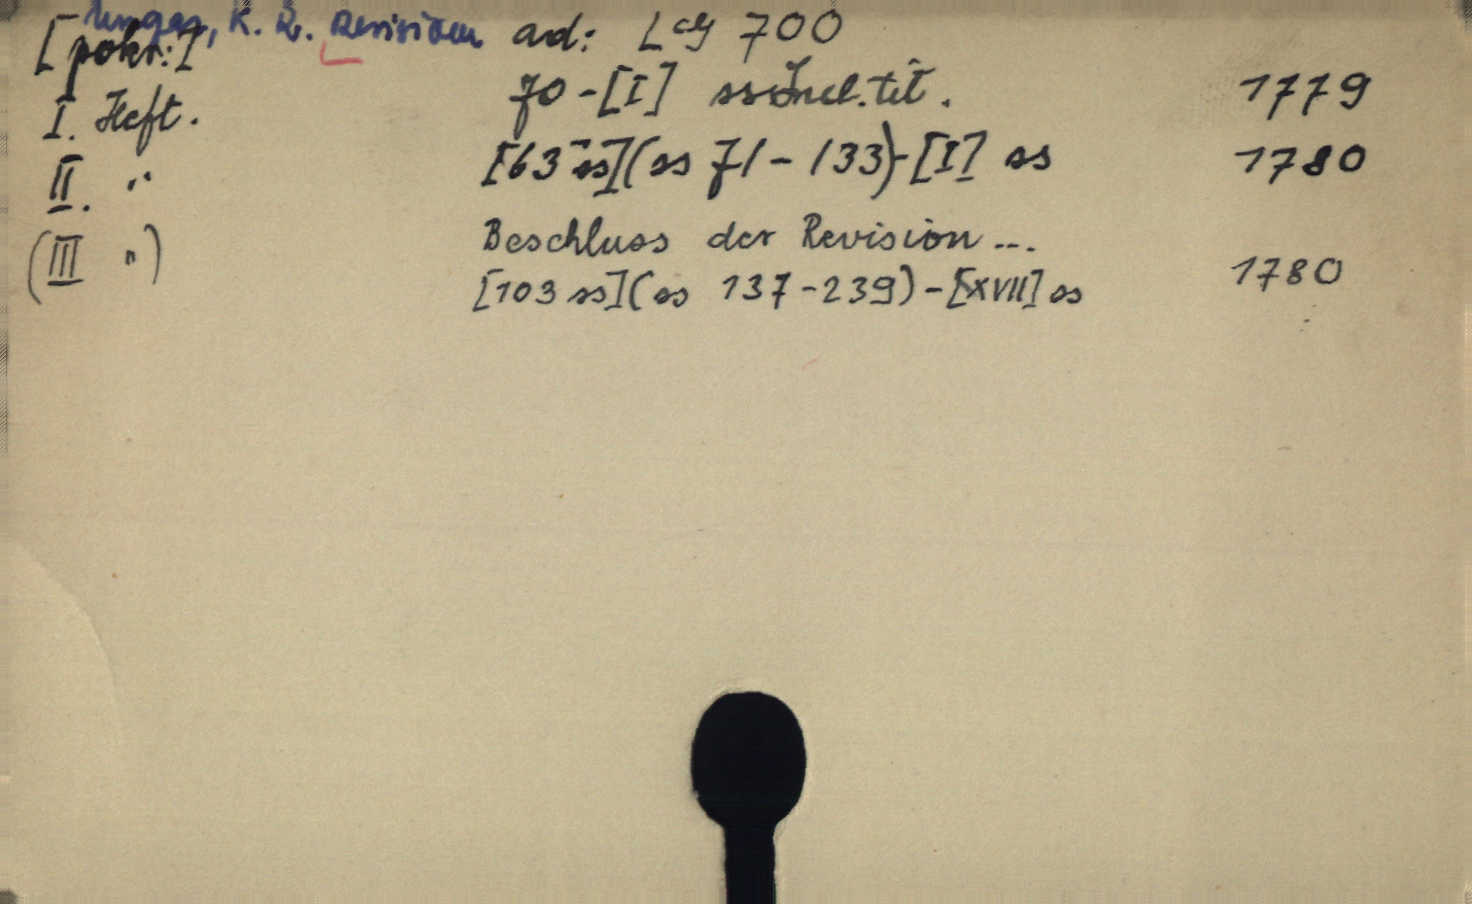 Ungar, K. R. Revision ad: Lcg 700
[pokr.:]
I. Heft. 70-[I] ss incl. tit. 1779
II. " [63 ss](ss 71-133)-[I] ss 1780
(III ") Beschluss der Revision...
[103 ss](ss 137-239)-[XVII] ss 1780